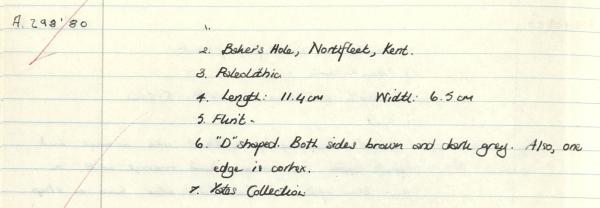 A. 298'80
1.
2. Baker's Hole, Northfleet, Kent.
3. Paleolithic
4. Length: 11.4cm Width: 6.5cm
5. Flint.
6. "D" shaped. Both sides brown and dark grey. Also, one
edge is cortex.
7. Yates Collection